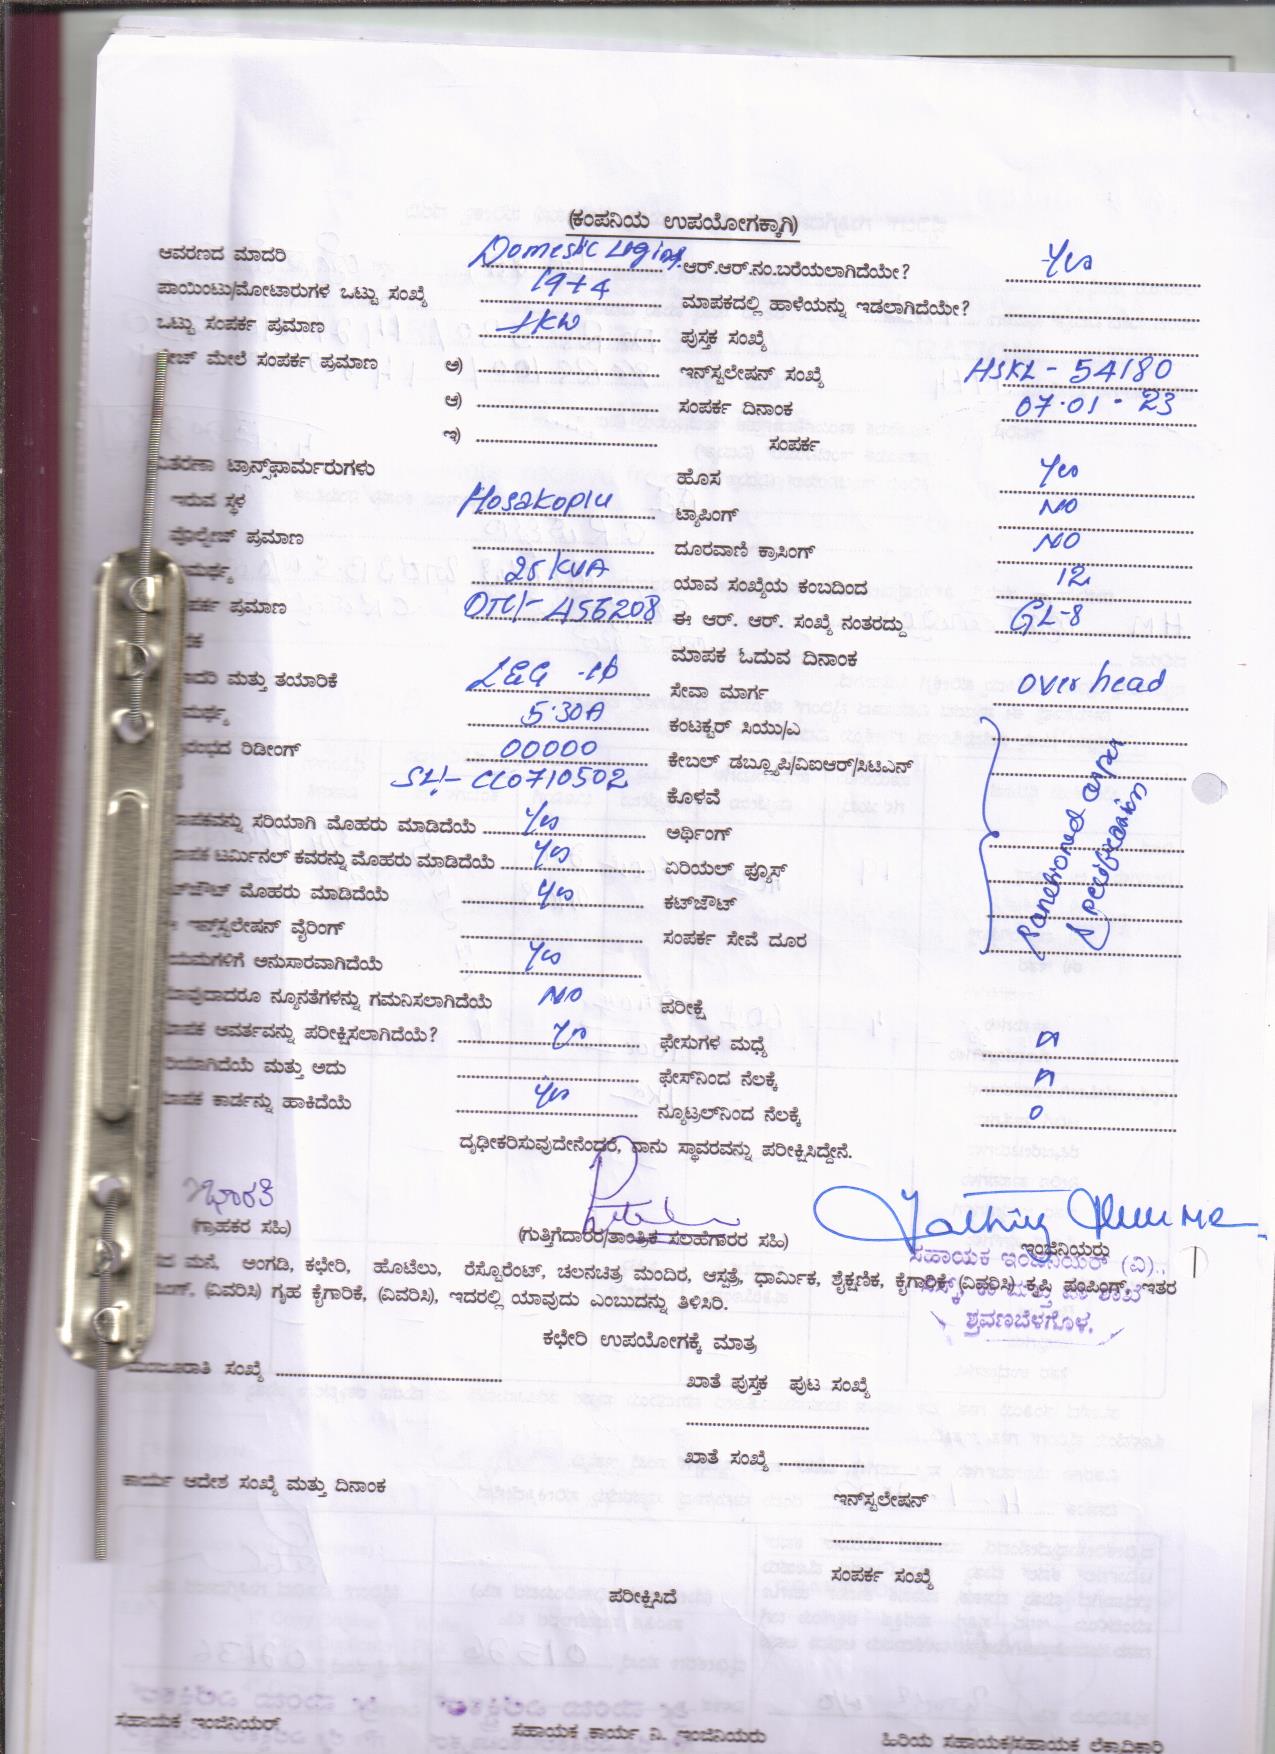 (ಕಂಪನಿಯ ಉಪಯೋಗಕ್ಕಾಗಿ)
ಆವರಣದ ಮಾದರಿ Domestic ಆರ್.ಆರ್.ನಂ.ಬರೆಯಲಾಗಿದೆಯೇ? Yes
ಪಾಯಿಂಟು/ಮೋಟಾರುಗಳ ಒಟ್ಟು ಸಂಖ್ಯೆ 19+4 ಮಾಪಕದಲ್ಲಿ ಹಾಳೆಯನ್ನು ಇಡಲಾಗಿದೆಯೇ?
ಒಟ್ಟು ಸಂಪರ್ಕ ಪ್ರಮಾಣ 1KW ಪುಸ್ತಕ ಸಂಖ್ಯೆ
ಮೇಲೆ ಸಂಪರ್ಕ ಪ್ರಮಾಣ ಅ) ಇನ್‌ಸ್ಟಲೇಷನ್ ಸಂಖ್ಯೆ HSKL - 54180
ಆ) ಸಂಪರ್ಕ ದಿನಾಂಕ 07.01.23
ಇ) ಸಂಪರ್ಕ
ಟ್ರಾನ್ಸ್‌ಫಾರ್ಮರುಗಳು ಹೊಸ Yes
ಇರುವ ಸ್ಥಳ Hosakoplu ಟ್ಯಾಪಿಂಗ್ NO
ವೊಲ್ಟೇಜ್ ಪ್ರಮಾಣ ದೂರವಾಣಿ ಕ್ರಾಸಿಂಗ್ NO
25 KVA ಯಾವ ಸಂಖ್ಯೆಯ ಕಂಬದಿಂದ 12
ಪ್ರಮಾಣ DTC/- A56208 ಈ ಆರ್. ಆರ್. ಸಂಖ್ಯೆ ನಂತರದ್ದು GL-8
ಮಾಪಕ ಓದುವ ದಿನಾಂಕ
ಮತ್ತು ತಯಾರಿಕೆ ಸೇವಾ ಮಾರ್ಗ over head
5.30A ಕಂಟಕ್ಟರ್ ಸಿಯು/ಎ
ರಿಡೀಂಗ್ 00000 ಕೇಬಲ್ ಡಬ್ಲ್ಯೂಪಿ/ವಿಐಆರ್/ಸಿಟಿಎನ್
SL!- CC0710502 ಕೊಳವೆ
ಸರಿಯಾಗಿ ಮೊಹರು ಮಾಡಿದೆಯೆ Yes ಅರ್ಥಿಂಗ್
ಟರ್ಮಿನಲ್ ಕವರನ್ನು ಮೊಹರು ಮಾಡಿದೆಯೆ Yes ಏರಿಯಲ್ ಫ್ಯೂಸ್
ಮೊಹರು ಮಾಡಿದೆಯೆ Yes ಕಟ್‌ಜೌಟ್
ಇನ್‌ಸ್ಟಲೇಷನ್ ವೈರಿಂಗ್ ಸಂಪರ್ಕ ಸೇವೆ ದೂರ
ಅನುಸಾರವಾಗಿದೆಯೆ Yes
ನ್ಯೂನತೆಗಳನ್ನು ಗಮನಿಸಲಾಗಿದೆಯೆ NO ಪರೀಕ್ಷೆ
ಆವರ್ತವನ್ನು ಪರೀಕ್ಷಿಸಲಾಗಿದೆಯೆ? Yes ಫೇಸುಗಳ ಮಧ್ಯೆ
ಮತ್ತು ಅದು ಫೇಸ್‌ನಿಂದ ನೆಲಕ್ಕೆ
ಕಾರ್ಡನ್ನು ಹಾಕಿದೆಯೆ Yes ನ್ಯೂಟ್ರಲ್‌ನಿಂದ ನೆಲಕ್ಕೆ 0
ದೃಢೀಕರಿಸುವುದೇನೆಂದರೆ, ನಾನು ಸ್ಥಾವರವನ್ನು ಪರೀಕ್ಷಿಸಿದ್ದೇನೆ.
ಭಾರತಿ
(ಗ್ರಾಹಕರ ಸಹಿ) (ಗುತ್ತಿಗೆದಾರರ/ತಾಂತ್ರಿಕ ಸಲಹೆಗಾರರ ಸಹಿ) ಇಂಜಿನಿಯರು
ಸಹಾಯಕ ಇಂಜಿನಿಯರ್ (ವಿ).,
ಮನೆ, ಅಂಗಡಿ, ಕಛೇರಿ, ಹೊಟೆಲು, ರೆಸ್ಟೊರೆಂಟ್, ಚಲನಚಿತ್ರ ಮಂದಿರ, ಆಸ್ಪತ್ರೆ, ಧಾರ್ಮಿಕ, ಶೈಕ್ಷಣಿಕ, ಕೈಗಾರಿಕೆ (ವಿವರಿಸಿ) ಕೃಷಿ ಪಂಪಿಂಗ್, ಇತರ
(ವಿವರಿಸಿ) ಗೃಹ ಕೈಗಾರಿಕೆ, (ವಿವರಿಸಿ), ಇದರಲ್ಲಿ ಯಾವುದು ಎಂಬುದನ್ನು ತಿಳಿಸಿರಿ.
ಶ್ರವಣಬೆಳಗೊಳ.
ಕಛೇರಿ ಉಪಯೋಗಕ್ಕೆ ಮಾತ್ರ
ಮಂಜೂರಾತಿ ಸಂಖ್ಯೆ ಖಾತೆ ಪುಸ್ತಕ ಪುಟ ಸಂಖ್ಯೆ
ಖಾತೆ ಸಂಖ್ಯೆ
ಕಾರ್ಯ ಆದೇಶ ಸಂಖ್ಯೆ ಮತ್ತು ದಿನಾಂಕ ಇನ್‌ಸ್ಟಲೇಷನ್
ಸಂಪರ್ಕ ಸಂಖ್ಯೆ
ಪರೀಕ್ಷಿಸಿದೆ
ಸಹಾಯಕ ಇಂಜಿನಿಯರ್ ಸಹಾಯಕ ಕಾರ್ಯ ನಿ. ಇಂಜಿನಿಯರು ಹಿರಿಯ ಸಹಾಯಕ/ಸಹಾಯಕ ಲೆಕ್ಕಾಧಿಕಾರಿ